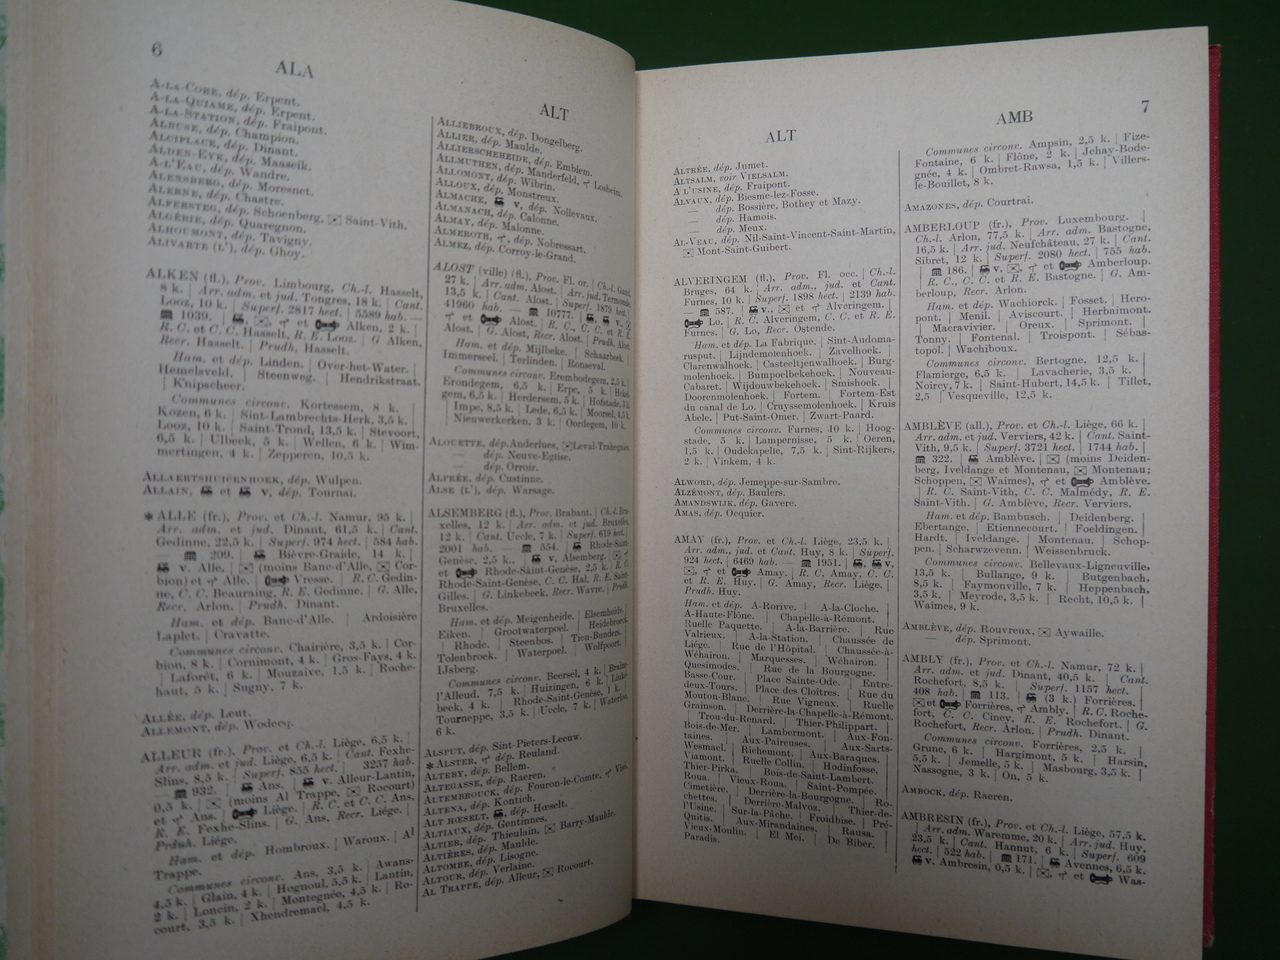 6
ALA
A-LA-CORE, dép. Erpent.
A-LA-QUIAME, dép. Erpent.
A-LA-STATION, dép. Fraipont.
ALBUNE, dép. Champion.
ALCIPLACE, dép. Dinant.
ALDEN-EYK, dép. Maaseik.
A-L'EAU, dép. Wandre.
ALENSBERG, dép. Moresnet.
ALERNE, dép. Chastre.
ALFERSTEG, dép. Schoenberg, Saint-Vith.
ALGÉRIE, dép. Quaregnon.
ALHOUMONT, dép. Tavigny.
ALIVARTE (L'), dép. Ghoy.
ALKEN (fl.), Prov. Limbourg, Ch.-l. Hasselt,
8 k. | Arr. adm. et jud. Tongres, 18 k. | Cant.
Looz, 10 k. | Superf. 2817 hect. | 5589 hab. —
1039. | et Alken, 2 k. |
R. C. et C. C. Hasselt, R. E. Looz. | G Alken,
Recr. Hasselt. | Prudh. Hasselt.
Ham. et dép. Linden. | Over-het-Water. |
Hemelsveld. | Steenweg. | Hendrikstraat.
| Knipscheer.
Communes circonv. Kortessem, 8 k. |
Kozen, 6 k. | Sint-Lambrechts-Herk, 3,5 k. |
Looz, 10 k. | Saint-Trond, 13,5 k. | Stevoort,
6,5 k. | Ulbeek, 5 k. | Wellen, 6 k. | Wim-
mertingen, 4 k. | Zepperen, 10,5 k.
ALLAERTSHUIZENHOEK, dép. Wulpen.
ALLAIN, et v, dép. Tournai.
* ALLE (fr.), Prov. et Ch.-l. Namur, 95 k. |
Arr. adm. et jud. Dinant, 61,5 k. | Cant.
Gedinne, 22,5 k. | Superf. 974 hect. | 584 hab.
— 209. | Bièvre-Graide, 14 k. |
v. Alle, | (moins Banc-d'Alle, Cor-
bion) et Alle, | Vresse. | R. C. Gedin-
ne, C. C. Beauraing, R. E. Gedinne. | G. Alle,
Recr. Arlon. | Prudh. Dinant.
Ham. et dép. Banc-d'Alle. | Ardoisière
Laplet. | Cravatte.
Communes circonv. Chairière, 3,5 k. | Cor-
bion, 8 k. | Cornimont, 4 k. | Gros-Fays, 4 k.
| Laforêt, 6 k. | Mouzaive, 1,5 k. | Roche-
haut, 5 k. | Sugny, 7 k.
ALLÉE, dép. Leut.
ALLEMONT, dép. Wodecq.
ALLEUR (fr.), Prov. et Ch.-l. Liège, 6,5 k. |
Arr. adm. et jud. Liège, 6,5 k. | Cant. Fexhe-
Slins, 8,5 k. | Superf. 855 hect. | 3257 hab.
— 932. | Ans. | v. Alleur-Lantin,
0,5 k. | (moins Al Trappe, Rocourt)
et Ans, | Liège. | R. C. et C. C. Ans,
R. E. Fexhe-Slins. | G. Ans, Recr. Liège. |
Prduh. Liège.
Ham. et dép. Hombroux. | Waroux. | Al
Trappe.
Communes circonv. Ans, 3,5 k. | Awans-
4,5 k. | Glain, 4 k. | Hognoul, 5,5 k. | Lantin,
2 k. | Loncin, 2 k. | Montegnée, 4,5 k. | Ro-
court, 3,5 k. | Xhendremael, 4,5 k.
ALT
ALLIEBROUX, dép. Dongelberg.
ALLIER, dép. Maulde.
ALLIERSCHEHEIDE, dép. Emblem.
ALLMUTHEN, dép. Manderfeld, Losheim.
ALLOMONT, dép. Wibrin.
ALLOUX, dép. Monstreux.
ALMACHE, v, dép. Nollevaux.
ALMANACH, dép. Calonne.
ALMAY, dép. Malonne.
ALMEROTH, dép. Nobressart.
ALMEZ, dép. Corroy-le-Grand.
ALOST (ville) (fl.), Prov. Fl. or. | Ch.-l. Gand,
27 k. | Arr. adm. Alost. | Arr. jud. Termonde,
13,5 k. | Cant. Alost. | Superf. 1879 hect. |
41960 hab. — 10777. | v,
et Alost. | R. C., C. C. et R. E.
Alost. | G. Alost, Recr. Alost. | Prudh. Alost.
Ham. et dép. Mijlbeke. | Schaarbeek. |
Immerseel. | Terlinden. | Ronseval.
Communes circonv. Erembodegem, 2,5 k. |
Erondegem, 6,5 k. | Erpe, 5 k. | Hekel-
gem, 6,5 k. | Herdersem, 5 k. | Hofstade, 3 k.
| Impe, 8,5 k. | Lede, 6,5 k. | Moorsel, 4,5 k.
| Nieuwerkerken, 3 k. | Oordegem, 10 k.
ALOUETTE, dép. Anderlues, Leval-Trahegnies.
— dép. Neuve-Eglise.
— dép. Orroir.
ALPHÉE, dép. Custinne.
ALSE (L'), dép. Warsage.
ALSEMBERG (fl.), Prov. Brabant. | Ch.-l. Bru-
xelles, 12 k. | Arr. adm. et jud. Bruxelles,
12 k. | Cant. Uccle, 7 k. | Superf. 619 hect. |
2001 hab. — 554. | Rhode-Saint-
Genèse, 2,5 k., v. Alsemberg.
et Rhode-Saint-Genèse, 2,5 k. | R. C.
Rhode-Saint-Genèse, C. C. Hal, R. E. Saint-
Gilles. | G. Linkebeek, Recr. Wavre. | Prudh.
Bruxelles.
Ham. et dép. Meigenheide. | Elsemheide. |
Eiken. | Grootwaterpoel. | Heidebroek.
| Rhode. | Steenbos. | Tien-Bunders. |
Tolenbroek. | Waterpoel. | Wolfpoort. |
IJsberg.
Communes circonv. Beersel, 4 k. | Braine-
l'Alleud, 7,5 k. | Huizingen, 6 k. | Linke-
beek, 4 k. | Rhode-Saint-Genèse, 1 k. |
Tourneppe, 3,5 k. | Uccle, 7 k. | Waterloo,
6 k.
ALSPUT, dép. Sint-Pieters-Leeuw.
* ALSTER, dép. Reuland.
ALTEBY, dép. Bellem.
ALTEGASSE, dép. Raeren.
ALTEMBROUCK, dép. Fouron-le-Comte,
ALTENA, dép. Kontich.
ALT HŒSELT, dép. Hœselt.
ALTIAUX, dép. Gentinnes.
ALTIER, dép. Thieulain, Barry-Maulde.
ALTIÈRES, dép. Maulde.
ALTOMBE, dép. Lisogne.
ALTOUR, dép. Verlaine.
AL TRAPPE, dép. Alleur, Rocourt.
ALT
ALTRÉE, dép. Jumet.
ALTSALM, voir VIELSALM.
A L'USINE, dép. Fraipont.
ALVAUX, dép. Biesme-lez-Fosse.
— dép. Bossière, Bothey et Mazy.
— dép. Hamois.
— dép. Meux.
AL-VEAU, dép. Nil-Saint-Vincent-Saint-Martin,
Mont-Saint-Guibert.
ALVERINGEM (fl.), Prov. Fl. occ. | Ch.-l.
Bruges, 64 k. | Arr. adm., jud. et Cant.
Furnes, 10 k. | Superf. 1898 hect. | 2139 hab.
— 587. | v., et Alveringem. |
Lo. | R. C. Alveringem, C. C. et R. E.
Furnes. | G. Lo, Recr. Ostende.
Ham. et dép. La Fabrique. | Sint-Audoma-
rusput. | Lijndemolenhoek. | Zavelhoek. |
Clarenwalhoek. | Casteeltjenwalhoek. | Burg-
molenhoek. | Bumpoelbekehoek. | Nouveau
Cabaret. | Wijdouwbekehoek. | Smishoek. |
Doorenmolenhoek. | Fortem. | Fortem-Est
du canal de Lo. | Cruyssemolenhoek. | Kruis
Abele. | Put-Saint-Omer. | Zwart-Paard.
Communes circonv. Furnes, 10 k. | Hoog-
stade, 5 k. | Lampernisse, 5 k. | Oeren,
1,5 k. | Oudekapelle, 7,5 k. | Sint-Rijkers,
2 k. | Vinkem, 4 k.
ALWORD, dép. Jemeppe-sur-Sambre.
ALZÉMONT, dép. Baulers.
AMANDSWIJK, dép. Gavere.
AMAS, dép. Ocquier.
AMAY (fr.), Prov. et Ch.-l. Liège, 23,5 k. |
Arr. adm., jud. et Cant. Huy, 8 k. | Superf.
924 hect. | 6469 hab. — 1951. | v,
et Amay. | R. C. Amay, C. C.
et R. E. Huy. | G. Amay, Recr. Liège. |
Prudh. Huy.
Ham. et dép. A-Rorive. | A-la-Cloche. |
A-Haute-Flône. | Chapelle-à-Rémont. |
Ruelle Paquette. | A-la-Barrière. | Rue
Valrieux. | A-la-Station. | Chaussée de
Liége. | Rue de l'Hôpital. | Chaussée-à-
Wéhairon. | Marquesses. | Wéhairon. |
Quesimodes. | Rue de la Bourgogne. |
Basse-Cour. | Place Sainte-Ode. | Entre-
deux-Tours. | Place des Cloîtres. | Rue du
Mouton-Blanc. | Rue Vigneux. | Ruelle
Grainson. | Derrière-la-Chapelle-à-Rémont.
| Trou-du-Renard. | Thier-Philippart. |
Bois-de-Mer. | Lambermont. | Aux-Fon-
taines. | Aux-Paireuses. | Aux-Sarts-
Wesmael. | Richemont. | Aux-Baraques. |
Viamont. | Ruelle Collin. | Hodinfosse. |
Thier-Pirka. | Bois-de-Saint-Lambert. |
Roua. | Vieux-Roua. | Saint-Pompée. |
Cimetière. | Derrière-la-Bourgogne. | Ro-
chettes. | Derrière-Malvoz. | Thier-de-
l'Usine. | Sur-la-Pâche. | Froidbise. | Pré-
Quitis. | Aux-Mirandaines. | Rausa. |
Vieux-Moulin. | El Mei. | De Biber. |
Paradis.
AMB
7
Communes circonv. Ampsin, 2,5 k. | Fize-
Fontaine, 6 k. | Flône, 2 k. | Jehay-Bode-
gnée, 4 k. | Ombret-Rawsa, 1,5 k. | Villers-
le-Bouillet, 8 k.
AMAZONES, dép. Courtrai.
AMBERLOUP (fr.), Prov. Luxembourg. |
Ch.-l. Arlon, 77,5 k. | Arr. adm. Bastogne,
16,5 k. | Arr. jud. Neufchâteau, 27 k. | Cant.
Sibret, 12 k. | Superf. 2080 hect. | 755 hab.
— 186. | v, et Amberloup.
| R. C., C. C. et R. E. Bastogne. | G. Am-
berloup, Recr. Arlon.
Ham. et dép. Wachiorck. | Fosset. | Hero-
pont. | Menil. | Aviscourt. | Herbaimont.
| Macravivier. | Oreux. | Sprimont. |
Tonny. | Fontenal. | Troispont. | Sébas-
topol. | Wachiboux.
Communes circonv. Bertogne, 12,5 k. |
Flamierge, 6,5 k. | Lavacherie, 3,5 k. |
Noircy, 7 k. | Saint-Hubert, 14,5 k. | Tillet,
2,5 | Vesqueville, 12,5 k.
AMBLÈVE (all.), Prov. et Ch.-l. Liége, 66 k. |
Arr. adm. et jud. Verviers, 42 k. | Cant. Saint-
Vith, 9,5 k. | Superf. 3721 hect. | 1744 hab.
— 322. | Amblève. | (moins Deiden-
berg, Iveldange et Montenau, Montenau;
Schoppen, Waimes), et Amblève.
| R. C. Saint-Vith, C. C. Malmédy, R. E.
Saint-Vith. | G. Amblève, Recr. Verviers.
Ham. et dép. Bambusch. | Deidenberg. |
Ebertange. | Etiennecourt. | Foeldingen. |
Hardt. | Iveldange. | Montenau. | Schop-
pen. | Scharwzevenn. | Weissenbruck.
Communes circonv. Bellevaux-Ligneuville,
13,5 k. | Bullange, 9 k. | Butgenbach,
8,5 k. | Faymonville, 7 k. | Heppenbach,
3,5 k. | Meyrode, 3,5 k. | Recht, 10,5 k. |
Waimes, 9 k.
AMBLÈVE, dép. Rouvreux, Aywaille.
— dép. Sprimont.
AMBLY (fr.), Prov. et Ch.-l. Namur, 72 k. |
Arr. adm. et jud. Dinant, 40,5 k. | Cant.
Rochefort, 8,5 k. | Superf. 1157 hect. |
408 hab. | 113. | (3 k.) Forrières. |
et Forrières, Ambly. | R. C. Roche-
fort, C. C. Ciney, R. E. Rochefort. | G.
Rochefort, Recr. Arlon. | Prudh. Dinant.
Communes circonv. Forrières, 2,5 k. |
Grune, 6 k. | Hargimont, 5 k. | Harsin,
5,5 k. | Jemelle, 5 k. | Masbourg, 3,5 k. |
Nassogne, 3 k. | On, 5 k.
AMBOCK, dép. Raeren.
AMBRESIN (fr.), Prov. et Ch.-l. Liège, 57,5 k.
Arr. adm. Waremme, 20 k. | Arr. jud. Huy,
23,5 k. | Cant. Hannut, 6 k. | Superf. 609
hect. | 522 hab. | 171. | Avennes, 6,5 k.
v. Ambresin, 0,5 k. | et Was-